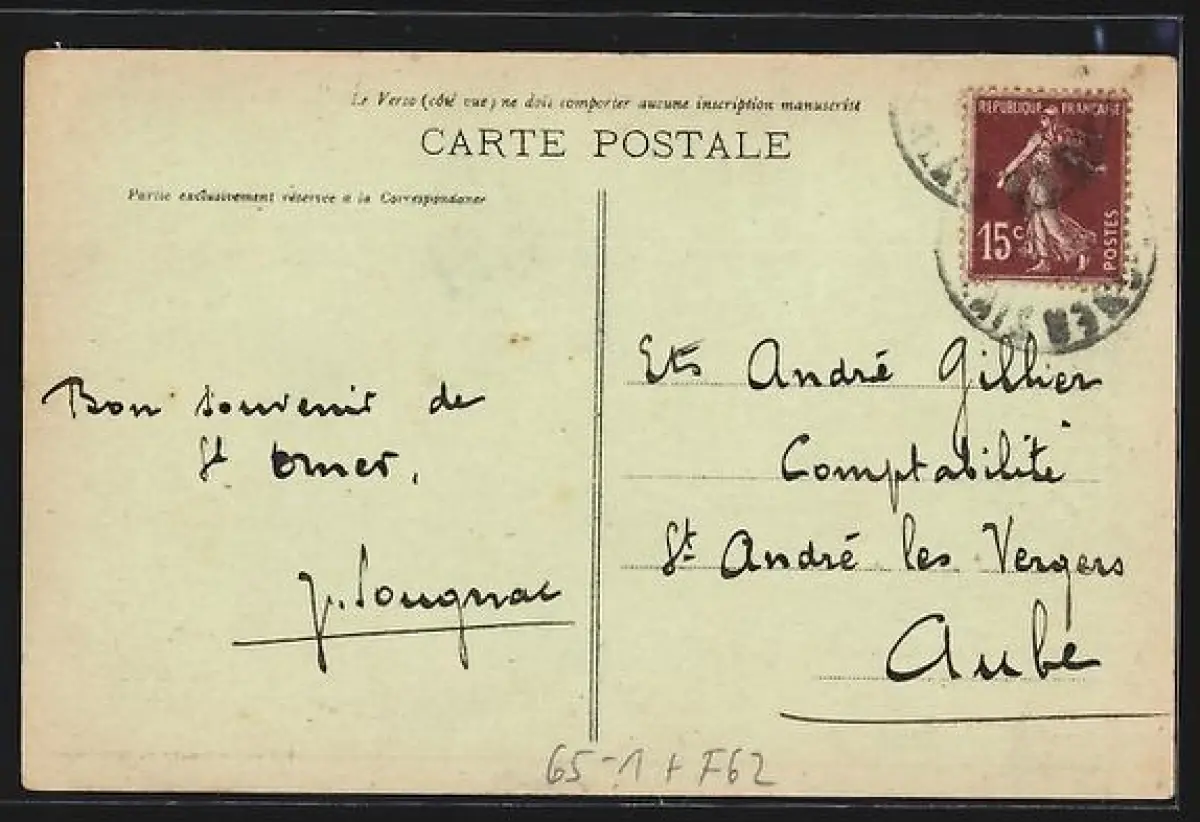 Le Verso (côté vue) ne doit comporter aucune inscription manuscrite
CARTE POSTALE
Partie exclusivement réservée à la Correspondance
REPUBLIQUE FRANÇAISE
15c
POSTES
Bon souvenir de
St Omer.
J. Sougnac
Ets André Gillier
Comptabilité
St André les Vergers
Aube
65-1 + F62